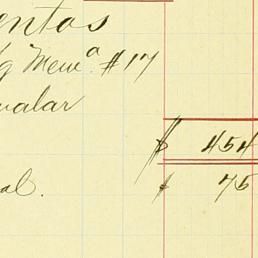 entos
g Memª. #17
valar
$ 454
al. $ 75